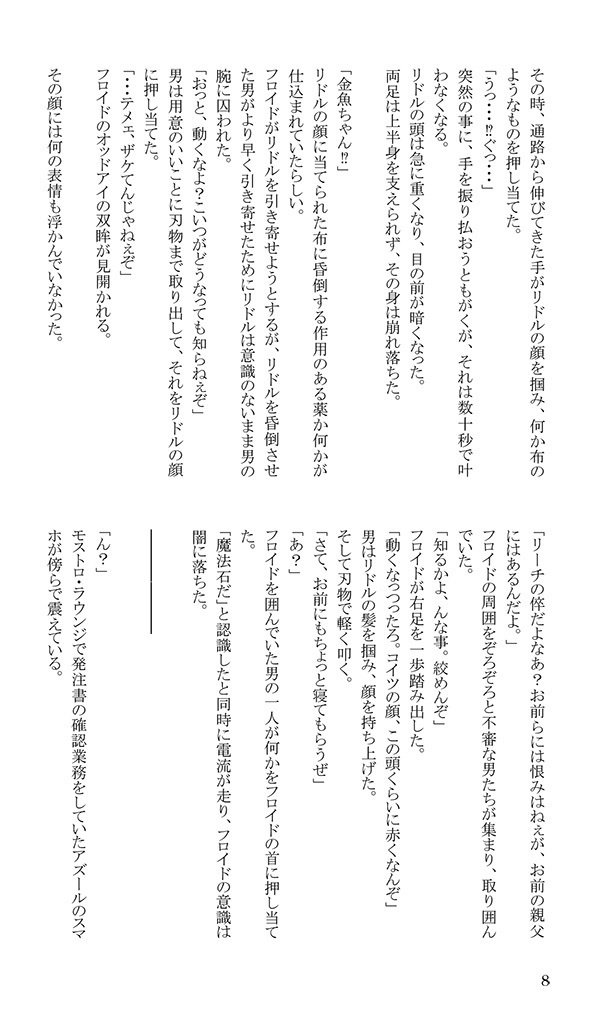 その時、通路から伸びてきた手がリドルの顔を掴み、何か布の
ようなものを押し当てた。
「うっ・・・⁉ぐっ・・・」
突然の事に、手を振り払おうともがくが、それは数十秒で叶
わなくなる。
リドルの頭は急に重くなり、目の前が暗くなった。
両足は上半身を支えられず、その身は崩れ落ちた。
「金魚ちゃん⁉」
リドルの顔に当てられた布に昏倒する作用のある薬か何かが
仕込まれていたらしい。
フロイドがリドルを引き寄せようとするが、リドルを昏倒させ
た男がより早く引き寄せたためにリドルは意識のないまま男の
腕に囚われた。
「おっと、動くなよ?こいつがどうなっても知らねぇぞ」
男は用意のいいことに刃物まで取り出して、それをリドルの顔
に押し当てた。
「・・・テメェ、ザケてんじゃねぇぞ」
フロイドのオッドアイの双眸が見開かれる。
その顔には何の表情も浮かんでいなかった。
「リーチの倅だよなあ?お前らには恨みはねぇが、お前の親父
にはあるんだよ。」
フロイドの周囲をぞろぞろと不審な男たちが集まり、取り囲ん
でいた。
「知るかよ、んな事。絞めんぞ」
フロイドが右足を一歩踏み出した。
「動くなっつったろ。コイツの顔、この頭くらいに赤くなんぞ」
男はリドルの髪を掴み、顔を持ち上げた。
そして刃物で軽く叩く。
「さて、お前にもちょっと寝てもらうぜ」
「あ?」
フロイドを囲んでいた男の一人が何かをフロイドの首に押し当て
た。
「魔法石だ」と認識したと同時に電流が走り、フロイドの意識は
闇に落ちた。
「ん?」
モストロ・ラウンジで発注書の確認業務をしていたアズールのスマ
ホが傍らで震えている。
8